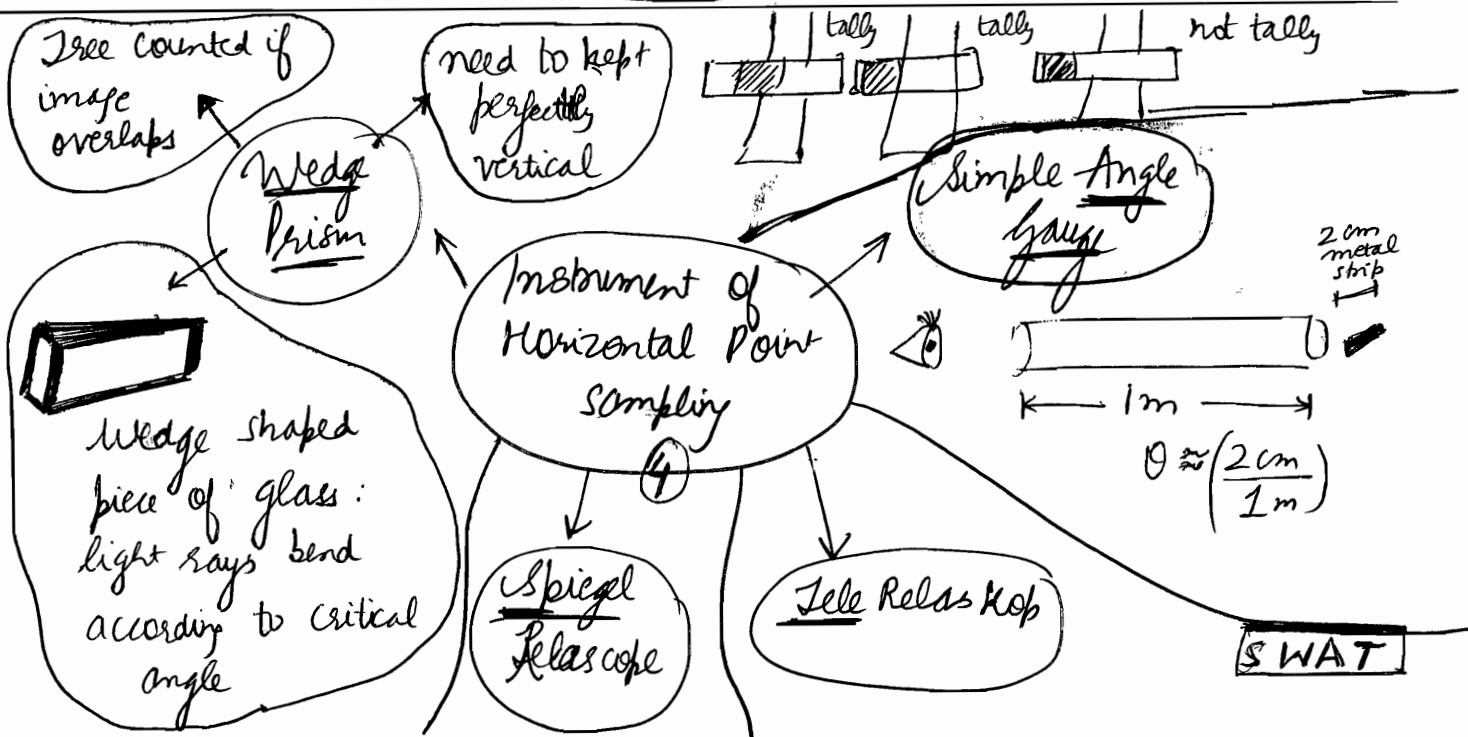 Tree counted if
image
overlaps
need to kept
perfectly
vertical
tally
tally
not tally
Wedge
Prism
Simple Angle
Gauge
2 cm
metal
strip
Instrument of
Horizontal Point
sampling
4
1m
θ ≈ (2 cm / 1 m)
Wedge shaped
piece of glass :
light rays bend
according to critical
angle
Spiegel
Relascope
Tele Relaskop
SWAT